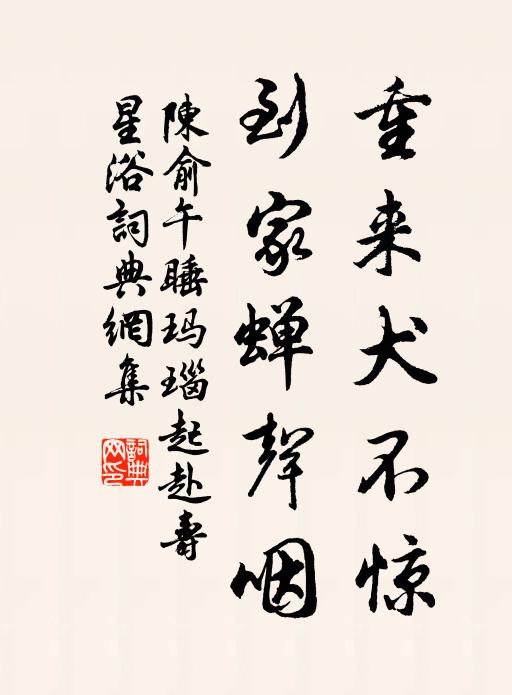 重来犬不惊
到家蝉聲咽
陳俞午睡玛瑙起赴壽
星浴詞典網集
詞典
网印